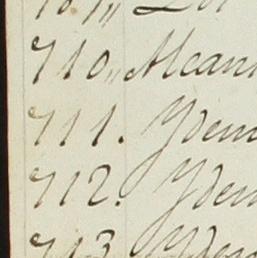 710,, Alcan
711. Ydem
712. Ydem
713. Ydem